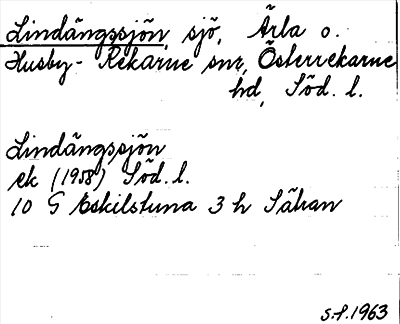 Lindängssjön, sjö, Ärla o.
Husby-Rekarne snr, Österrekarne
hd, Söd. l.
Lindängssjön
ek (1958) Söd. l.
10 G Eskilstuna 3 h Sähan
S.f. 1963